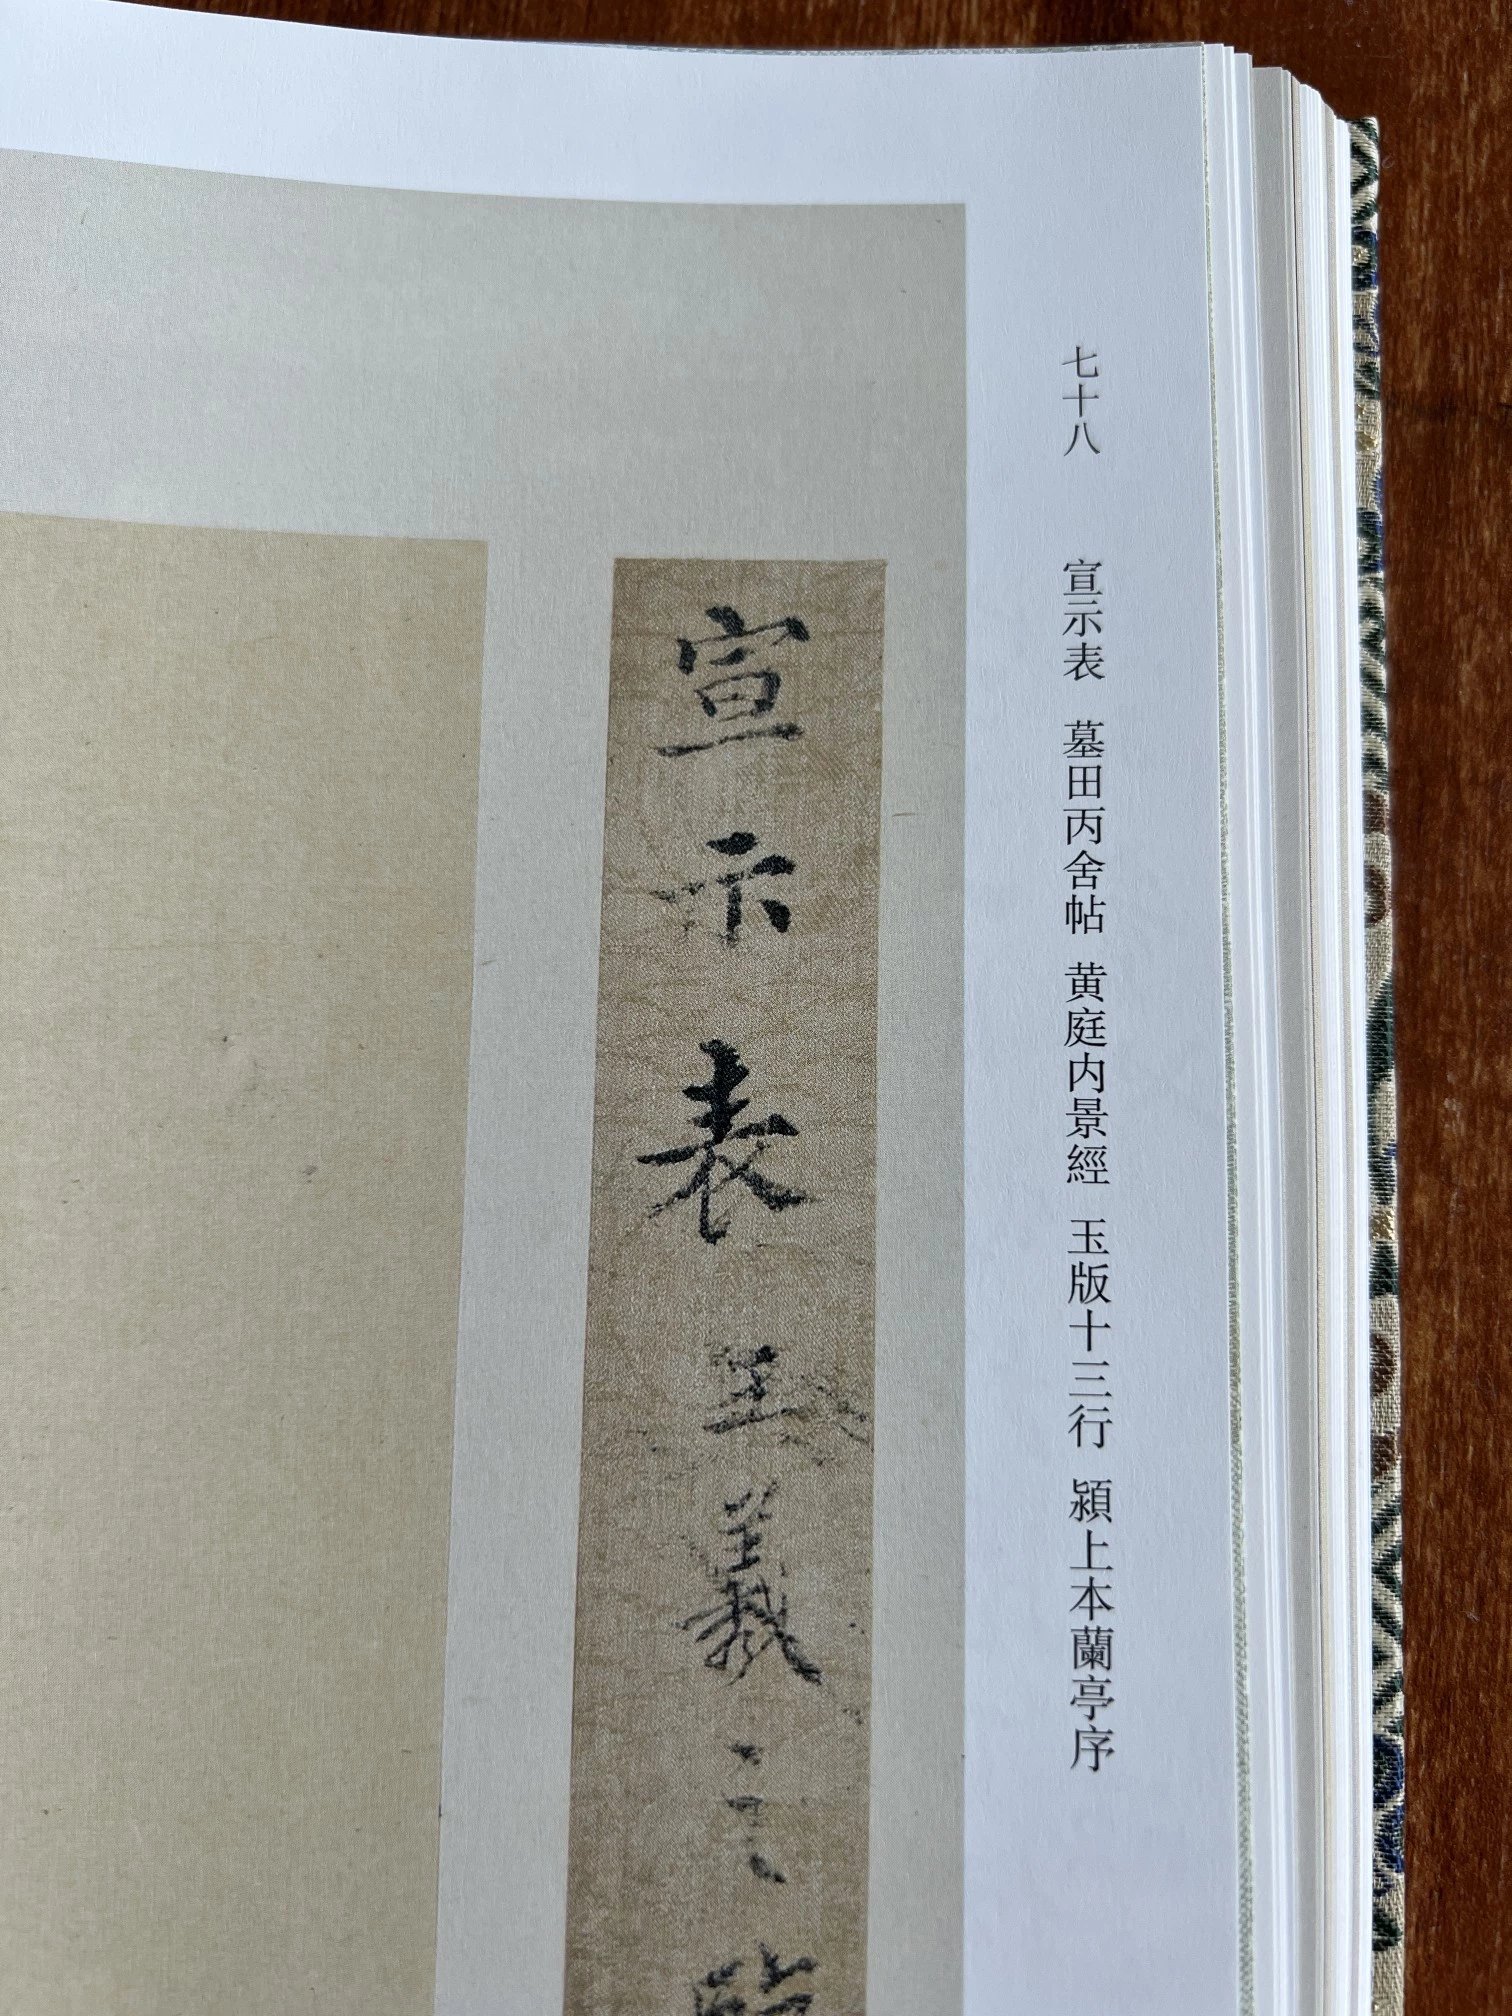 七十八 宣示表 墓田丙舍帖 黄庭内景經 玉版十三行 潁上本蘭亭序
宣示表 王羲之臨